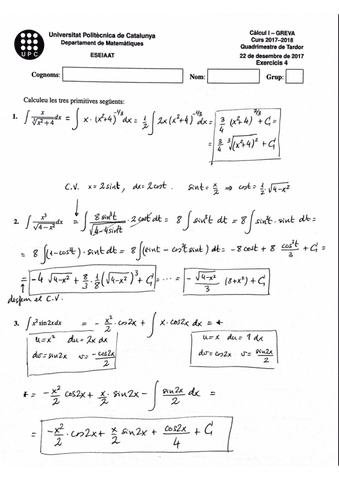 UPC
Universitat Politècnica de Catalunya
Departament de Matemàtiques
ESEIAAT
Càlcul I – GREVA
Curs 2017–2018
Quadrimestre de Tardor
22 de desembre de 2017
Exercicis 4
Cognoms: Nom: Grup:
Calculeu les tres primitives següents:
1. ∫ x/∛(x²+4) dx = ∫ x·(x²+4)^(-1/3) dx = 1/2 ∫ 2x(x²+4)^(-1/3) dx = 3/4 (x²+4)^(2/3) + C =
= 3/4 ∛(x²+4)² + C
C.V. x = 2sint, dx = 2cost. sint = x/2 ⇒ cost = 1/2 √(4-x²)
2. ∫ x³/√(4-x²) dx = ∫ 8sin³t/√(4-4sin²t) · 2cost dt = 8 ∫ sin³t dt = 8 ∫ sin²t · sint dt =
= 8 ∫ (1-cos²t)·sint dt = 8 ∫ (sint - cos²t sint) dt = -8cost + 8 cos³t/3 + C =
= -4 √(4-x²) + 8/3 · 1/8 (√(4-x²))³ + C = ··· = - √(4-x²)/3 (8+x²) + C
desfem el C.V.
3. ∫ x² sin 2x dx = - x²/2 · cos2x + ∫ x·cos2x dx = *
u = x² du = 2x dx
dv = sin2x v = -cos2x/2
u = x du = 1 dx
dv = cos2x v = sin2x/2
* = - x²/2 cos2x + x/2 · sin2x - ∫ sin2x/2 dx =
= -x²/2 · cos2x + x/2 sin2x + cos2x/4 + C